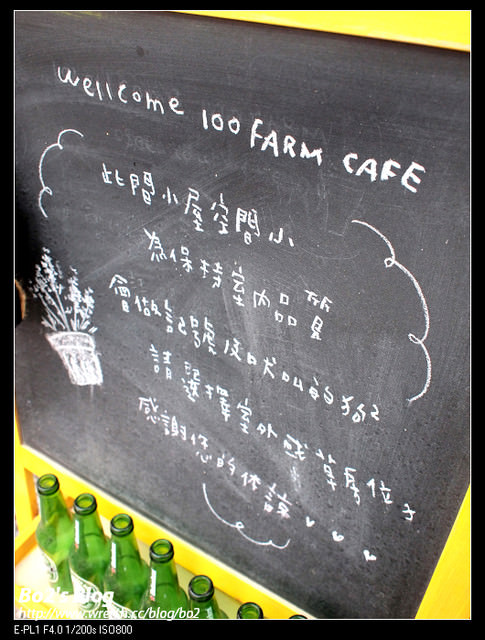 wellcome 100 FARM CAFE
此間小屋空間小
為保持室內品質
會做記號及吠叫的狗狗
請選擇室外或草房位子
感謝您的体諒
Bo2's Blog
http://www.wretch.cc/blog/bo2
E-PL1 F4.0 1/200s ISO800